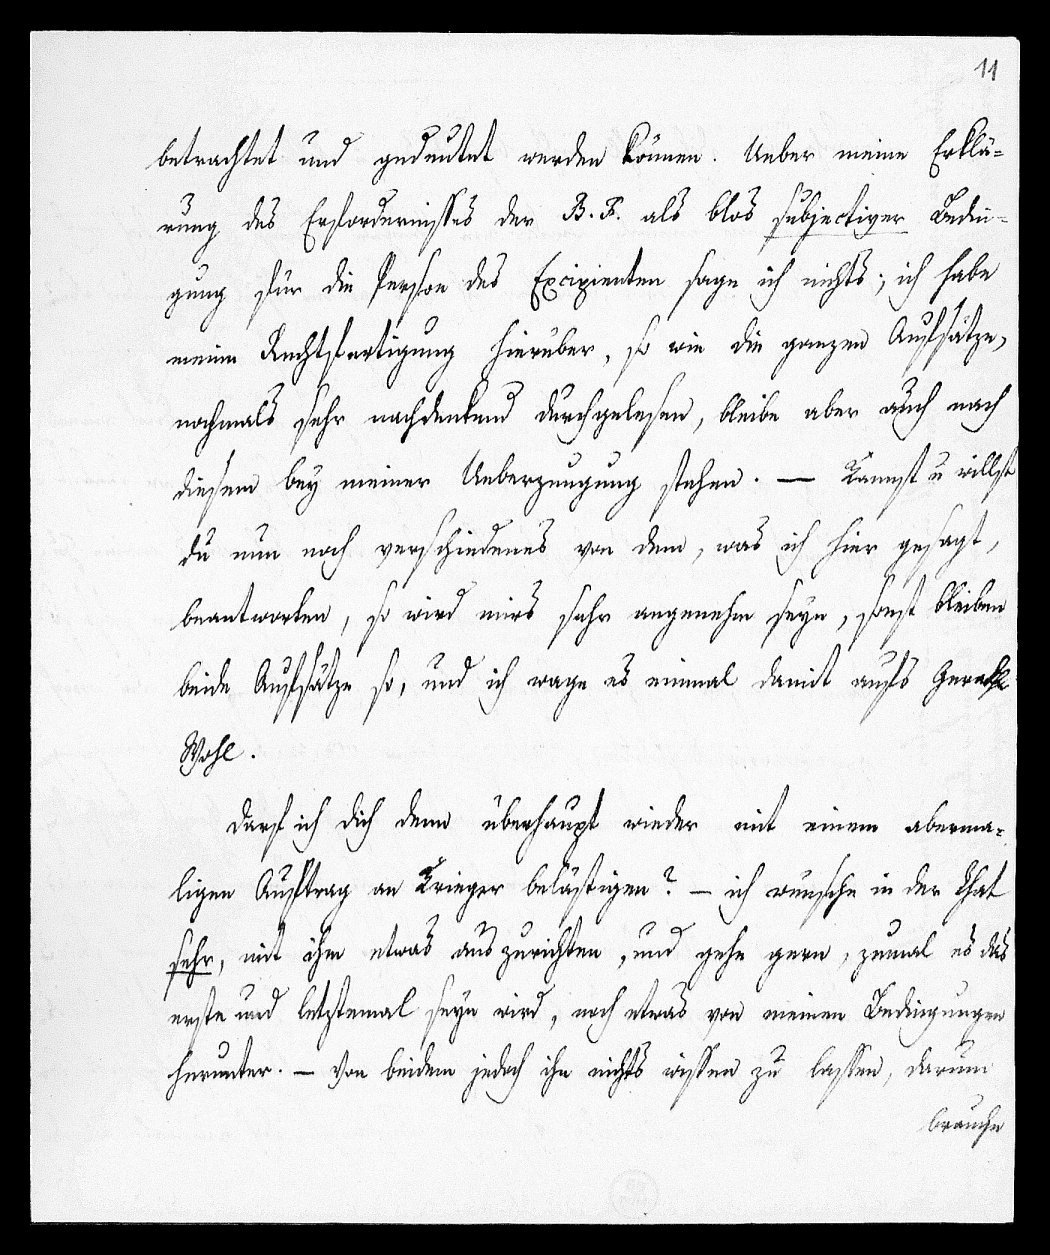 11
betrachtet und gedeutet werden können. Ueber meine Erklä-
rung des Erfordernisses der B. F. als blos subjectiver Bedin-
gung für die Person des Excipienten sage ich nichts; ich habe
meine Rechtfertigung hierüber, so wie die ganzen Aufsätze,
nochmals sehr nachdenkend durchgelesen, bleibe aber auch nach
diesem bey meiner Ueberzeugung stehen. — Kannst u willst
du nun noch verschiedenes von dem, was ich hier gesagt,
beantworten, so wird mirs sehr angenehm seyn, sonst bleiben
beide Aufsätze so, und ich wage es einmal damit aufs Gerathe
Wohl.
Darf ich dich denn überhaupt wieder mit einem aberma-
ligen Auftrag an Krieger belästigen? — ich wünsche in der That
sehr, mit ihm etwas auszurichten, und gehe gern, zumal es das
erste und letztemal seyn wird, noch etwas von meinen Bedingungen
herunter. — Von beidem jedoch ihn nichts wissen zu lassen, darum
brauche